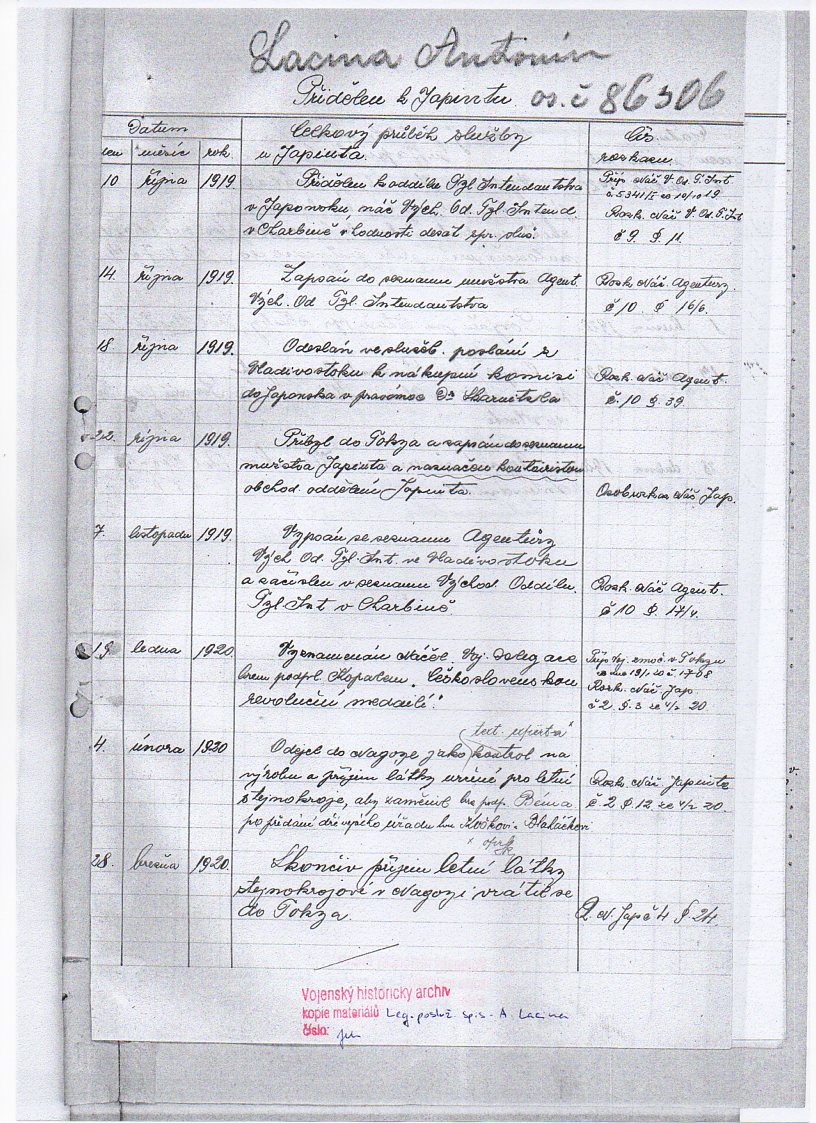 Lacina Antonín
Přidělen k Japintu os. č 86306
Datum
měsíc rok
Celkový průběh služby
u Japinta.
Čís.
rozkazu.
10 října 1919 Přidělen k oddělu Tyl Intendantstva
v Japonsku, náč Vých. Od. Tyl Intend.
v Charbině v hodnosti desát
č 5341/I
Rozk. Náč V. Od. T. Int
č 9. §. 11.
14. října 1919. Zapsán do seznamu mužstva Agent.
Vých. Od Tyl. Intendantstva
Rozk. Náč. Agentury.
č 10. § 16/b.
18. října 1919. Odeslán ve služeb. poslání z
Vladivostoku k nákupní komisi
do Japonska v Dr
Rozk. Náč Agent.
č. 10 §. 39.
22. října 1919. Přibyl do Tokya a zapsán do seznamu
mužstva Japinta a naznačen kontoristou
obchod. oddělení Japinta.
Náč Jap.
7. listopadu 1919. Vypsán se seznamu Agentury
Vých. Od. Tyl. Int. ve Vladivostoku
a začíslen v seznamu Východ. Oddílu.
Tyl. Int v Charbině
Rozk. Náč Agent.
č 10 §. 17/v.
19. ledna 1920. Vyznamenán Náčel. Voj. Delegace
brem podpl. Československou
revoluční medailí."
Voj. zmoc. v Tokyu
č. 1708
Rozk. Náč Jap
č 2 §. 3 ze 4/2 20
4. února 1920 Odejel do Nagoye jako kontrol na
výrobu a příjem látky určené pro letní
stejnokroje, aby zaměnil bra podp. Béma
po předání dřívejšího úřadu bru
Rozk. Náč Japinta
č 2 §. 12 ze 4/2 20.
28. března 1920. Skončiv příjem letní látky
stejnokrojové v Nagoyi vrátil se
do Tokya.
R. N. Jap č 4 § 24.
Vojenský historický archiv
kopie materiálů Leg. posluž. spis - A. Lacina
číslo: